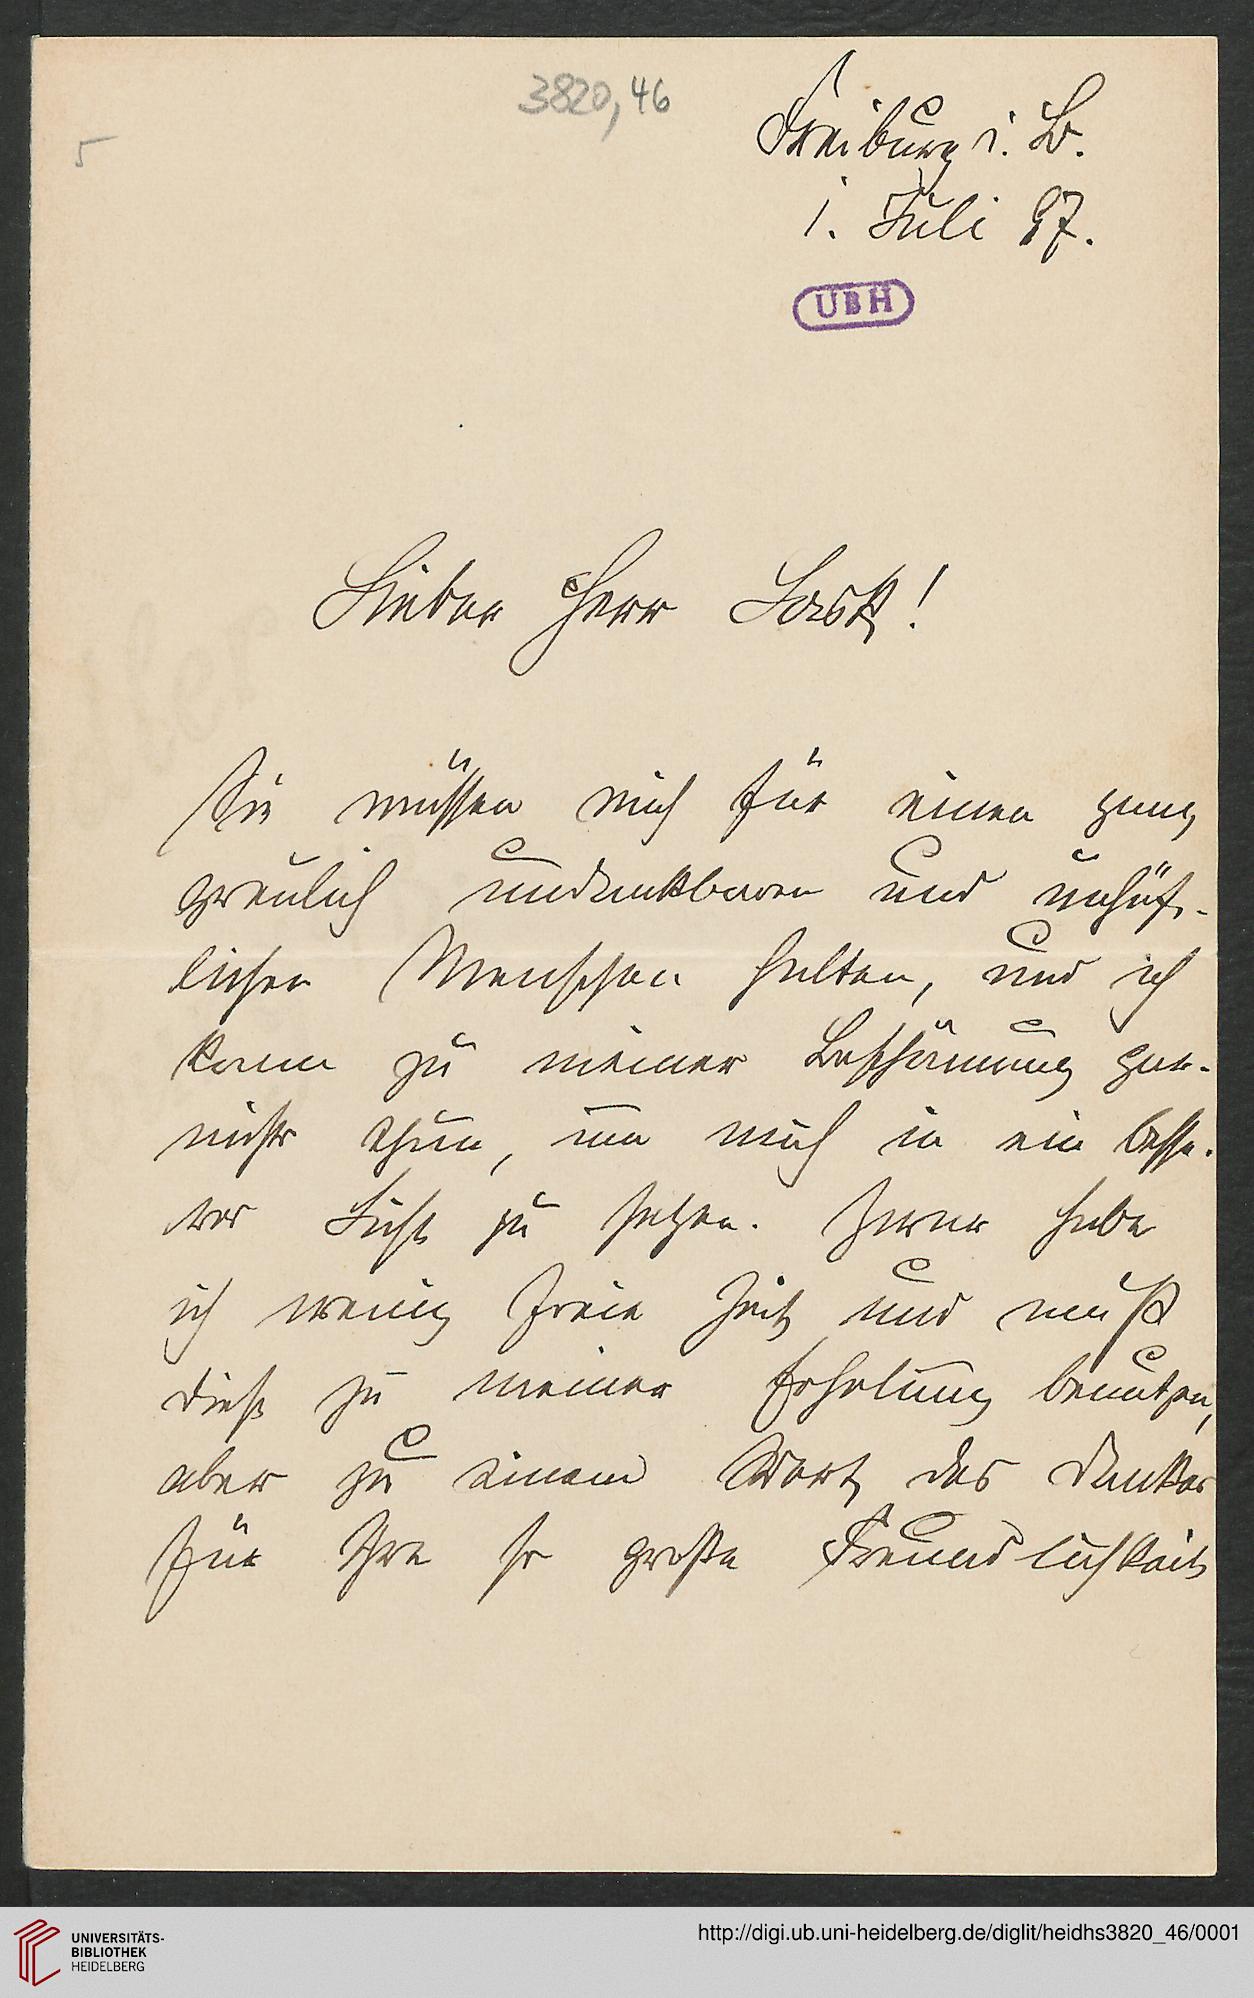 3820,46
5
Freiburg i. B.
1. Juli 97.
UBH
Lieber Herr Lask!
Sie müssen mich für einen ganz
greulich undankbaren und unhöf-
lichen Menschen halten, und ich
kann zu meiner Beschämung gar-
nichts thun, um mich in ein besse-
res Licht zu setzen. Zwar habe
ich wenig freie Zeit und muß
diese zu meiner Erholung benutzen,
aber zu einem Wort des Dankes
für Ihre so große Freundlichkeit
UNIVERSITÄTS-
BIBLIOTHEK
HEIDELBERG
http://digi.ub.uni-heidelberg.de/diglit/heidhs3820_46/0001